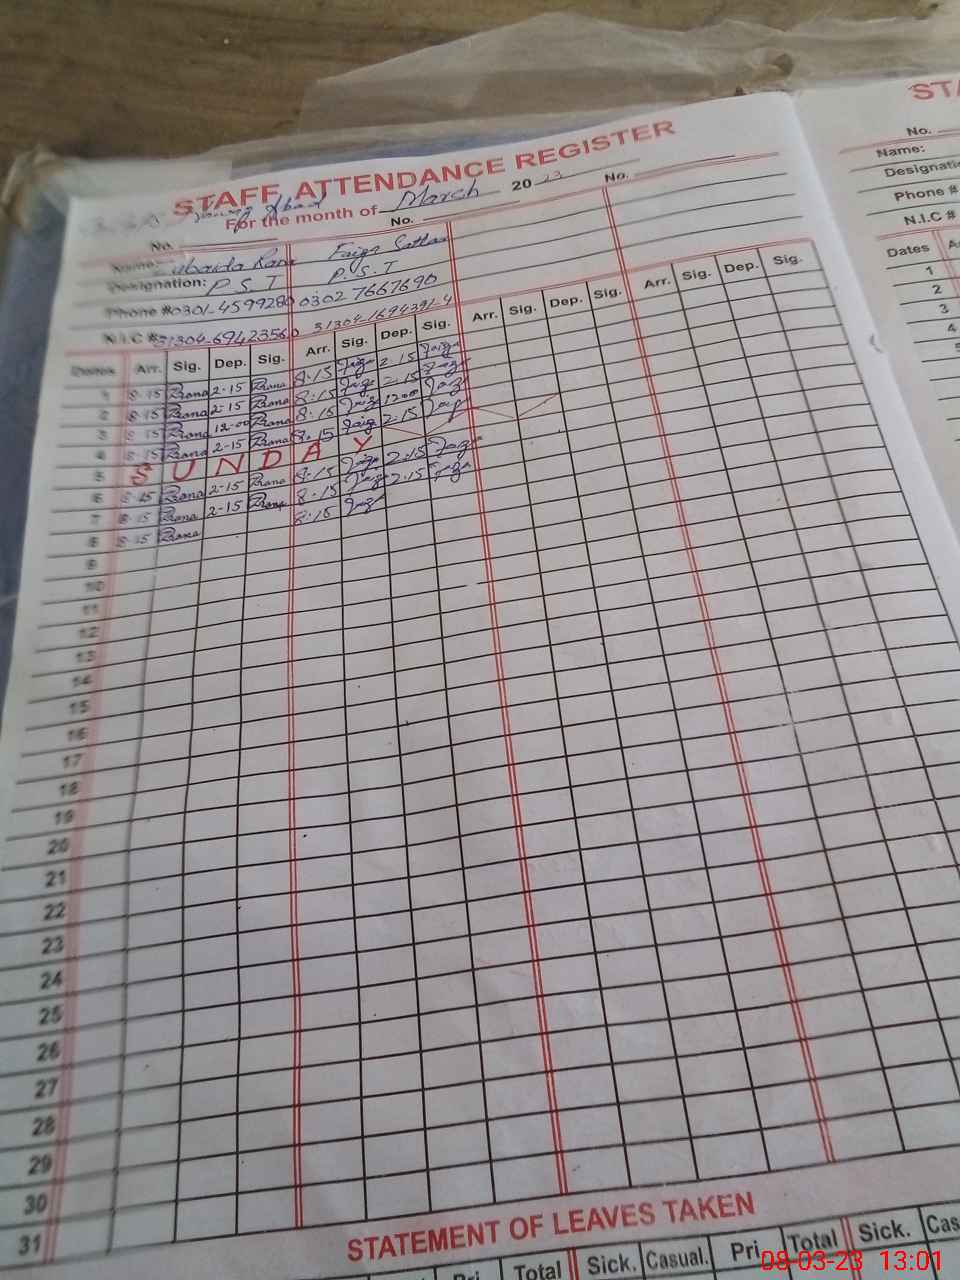 STAFF ATTENDANCE REGISTER
For the month of March 2023
No. No. No.
Name: Rana Faiza Sattar
Designation: P.S.T P.S.T
Phone # 0301-4599280 0302 7667690
N.I.C #
Dates Arr. Sig. Dep. Sig. Arr. Sig. Dep. Sig. Arr. Sig. Dep. Sig. Arr. Sig. Dep. Sig.
1 8-15 Rana 2-15 Rana 8-15 Faiza 2-15 Faiza
2 8-15 Rana 2-15 Rana 8-15 Faiza 2-15 Faiza
3 8-15 Rana 12-00 Rana 8-15 Faiza 12-00 Faiza
4 8-15 Rana 2-15 Rana 8-15 Faiza 2-15 Faiza
5 SUNDAY
6 8-15 Rana 2-15 Rana 8-15 Faiza 2-15 Faiza
7 8-15 Rana 2-15 Rana 8-15 Faiza 2-15 Faiza
8 8-15 Rana 8-15 Faiza
9
10
11
12
13
14
15
16
17
18
19
20
21
22
23
24
25
26
27
28
29
30
31
STATEMENT OF LEAVES TAKEN
Pri. Total Sick. Casual. Pri. Total Sick. Cas
STA
No.
Name:
Designati
Phone #
N.I.C #
Dates A
1
2
3
4
5
08-03-23 13:01